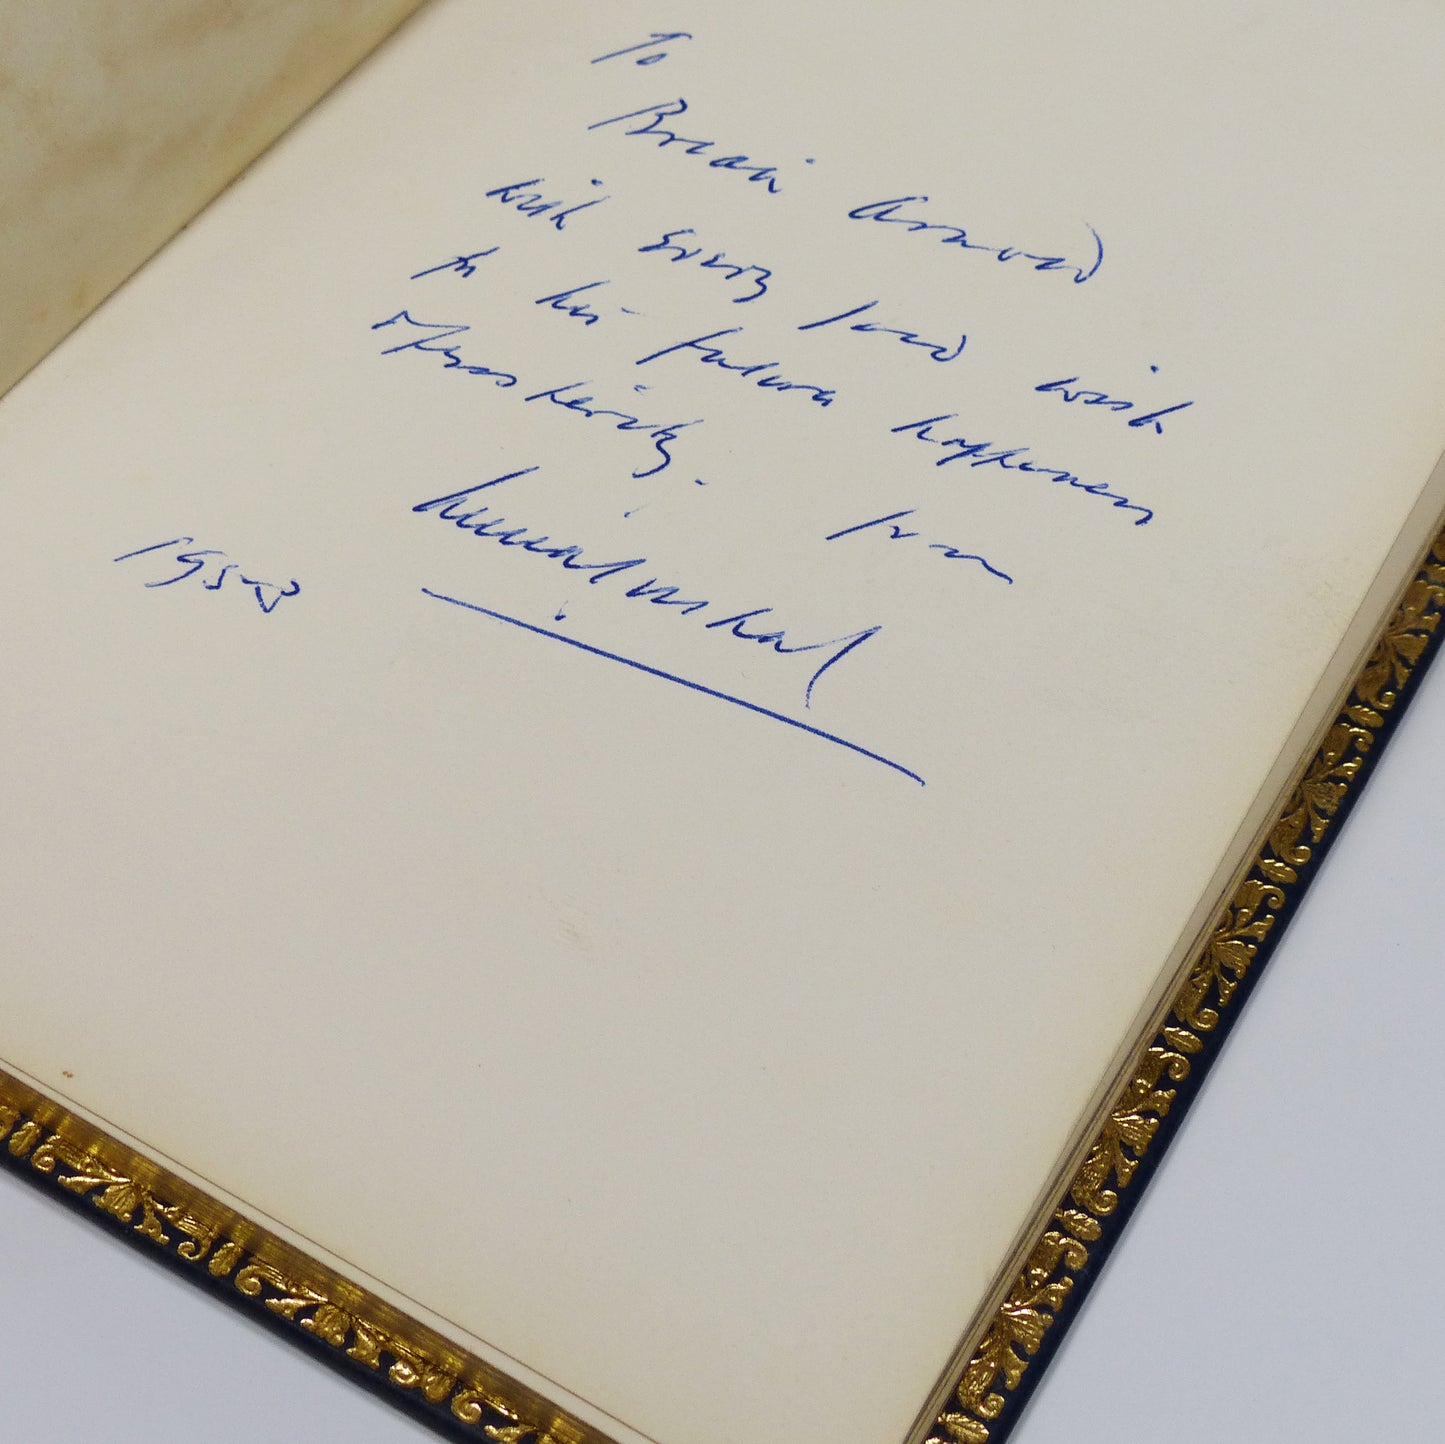 To
Brian Arnold
with every good wish
for his future happiness
& prosperity. from
1958